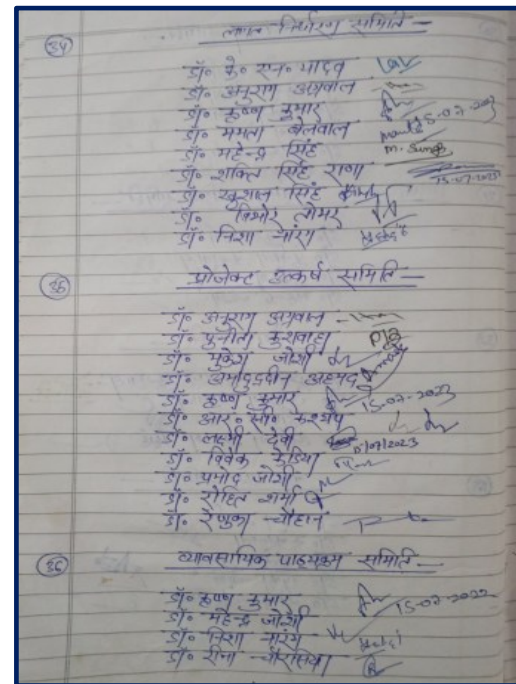 34 लक्ष्य निर्धारण समिति —
डॉ० के० एन० यादव
डॉ० अनुराग अग्रवाल
डॉ० कृष्ण कुमार 15-07-2023
डॉ० ममता बेलवाल Mamta
डॉ० महेन्द्र सिंह M. Singh
डॉ० शक्ति सिंह राणा 15-07-2023
डॉ० खुशाल सिंह
डॉ० विभोर तोमर
डॉ० निशा नारंग
35 प्रोजेक्ट उत्कर्ष समिति —
डॉ० अनुराग अग्रवाल
डॉ० पुनीता कुशवाहा
डॉ० मुकेश जोशी
डॉ० अमादुद्दीन अहमद
डॉ० कृष्ण कुमार 15-07-2023
डॉ० आर० सी० कश्यप
डॉ० लक्ष्मी देवी /07/2023
डॉ० विवेक केडिया
डॉ० प्रमोद जोशी
डॉ० रोहित शर्मा
डॉ० रेणुका चौहान
36 व्यावसायिक पाठ्यक्रम समिति —
डॉ० कृष्ण कुमार 15-07-2022
डॉ० महेन्द्र जोशी
डॉ० निशा नारंग
डॉ० रीना चौरसिया